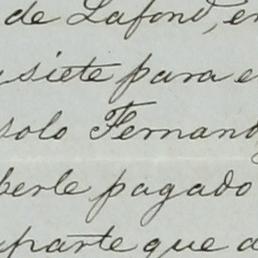 de Lafond, en
siete para e
solo Fernand
berle pagado
parte que a